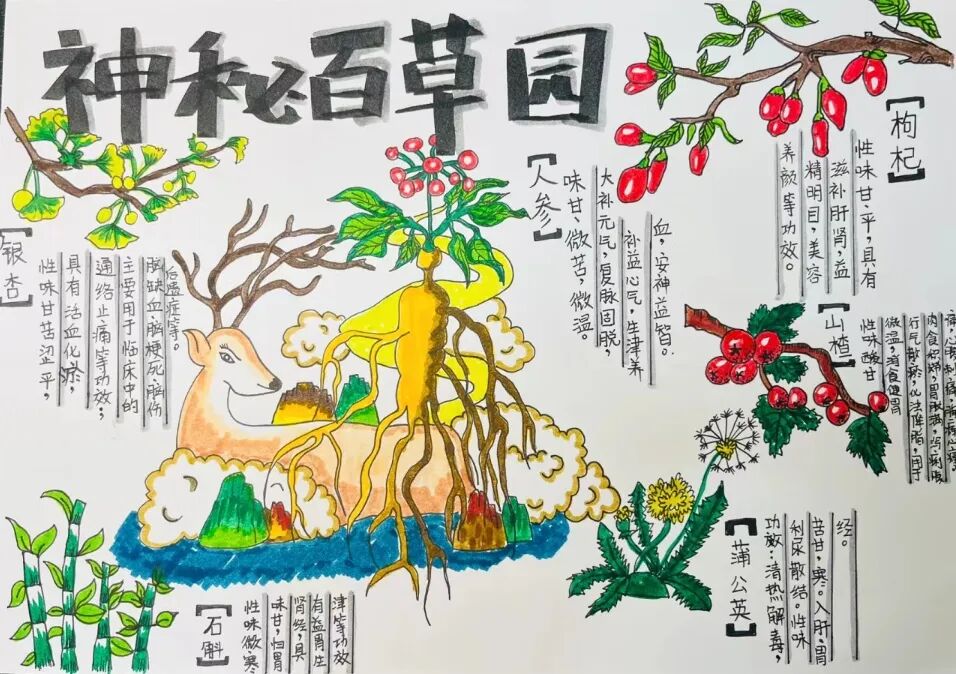 神秘百草园
【银杏】
性味甘苦涩平,
具有活血化瘀,
通络止痛等功效;
主要用于临床中的
脑缺血,脑梗死,脑伤
后遗症等。
【人参】
味甘、微苦,微温。
大补元气,复脉固脱,
补益心气,生津养
血,安神益智.
【枸杞】
性味甘、平,具有
滋补肝肾,益
精明目,美容
养颜等功效。
【山楂】
性味酸甘
微温,消食健胃
行气散瘀,化浊降脂,用于
肉食积滞,胃脘胀满,泻痢腹
痛,心腹刺痛,胸痹心痛。
【蒲公英】
功效:清热解毒,
利尿散结。性味
苦甘,寒。入肝,胃
经。
【石斛】
性味微寒
味甘,归胃
肾经,具
有益胃生
津等功效